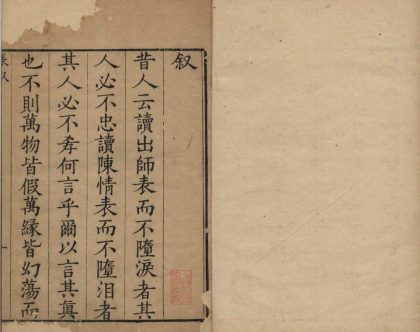 叙
昔人云讀出師表而不墮淚者其
人必不忠讀陳情表而不墮泪者
其人必不孝何言乎爾以言其真
也不則萬物皆假萬緣皆幻蕩而